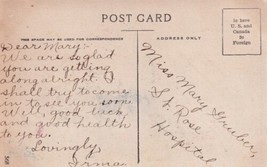 POST CARD
THIS SPACE MAY BE USED FOR CORRESPONDENCE
ADDRESS ONLY
Dear Mary:-
We are so glad
you are getting
along alright. I
shall try to come
in to see you soon
Wish good luck
and good health
to you.
Lovingly
Irma
Miss Mary Gruber,
St Rose
Hospital